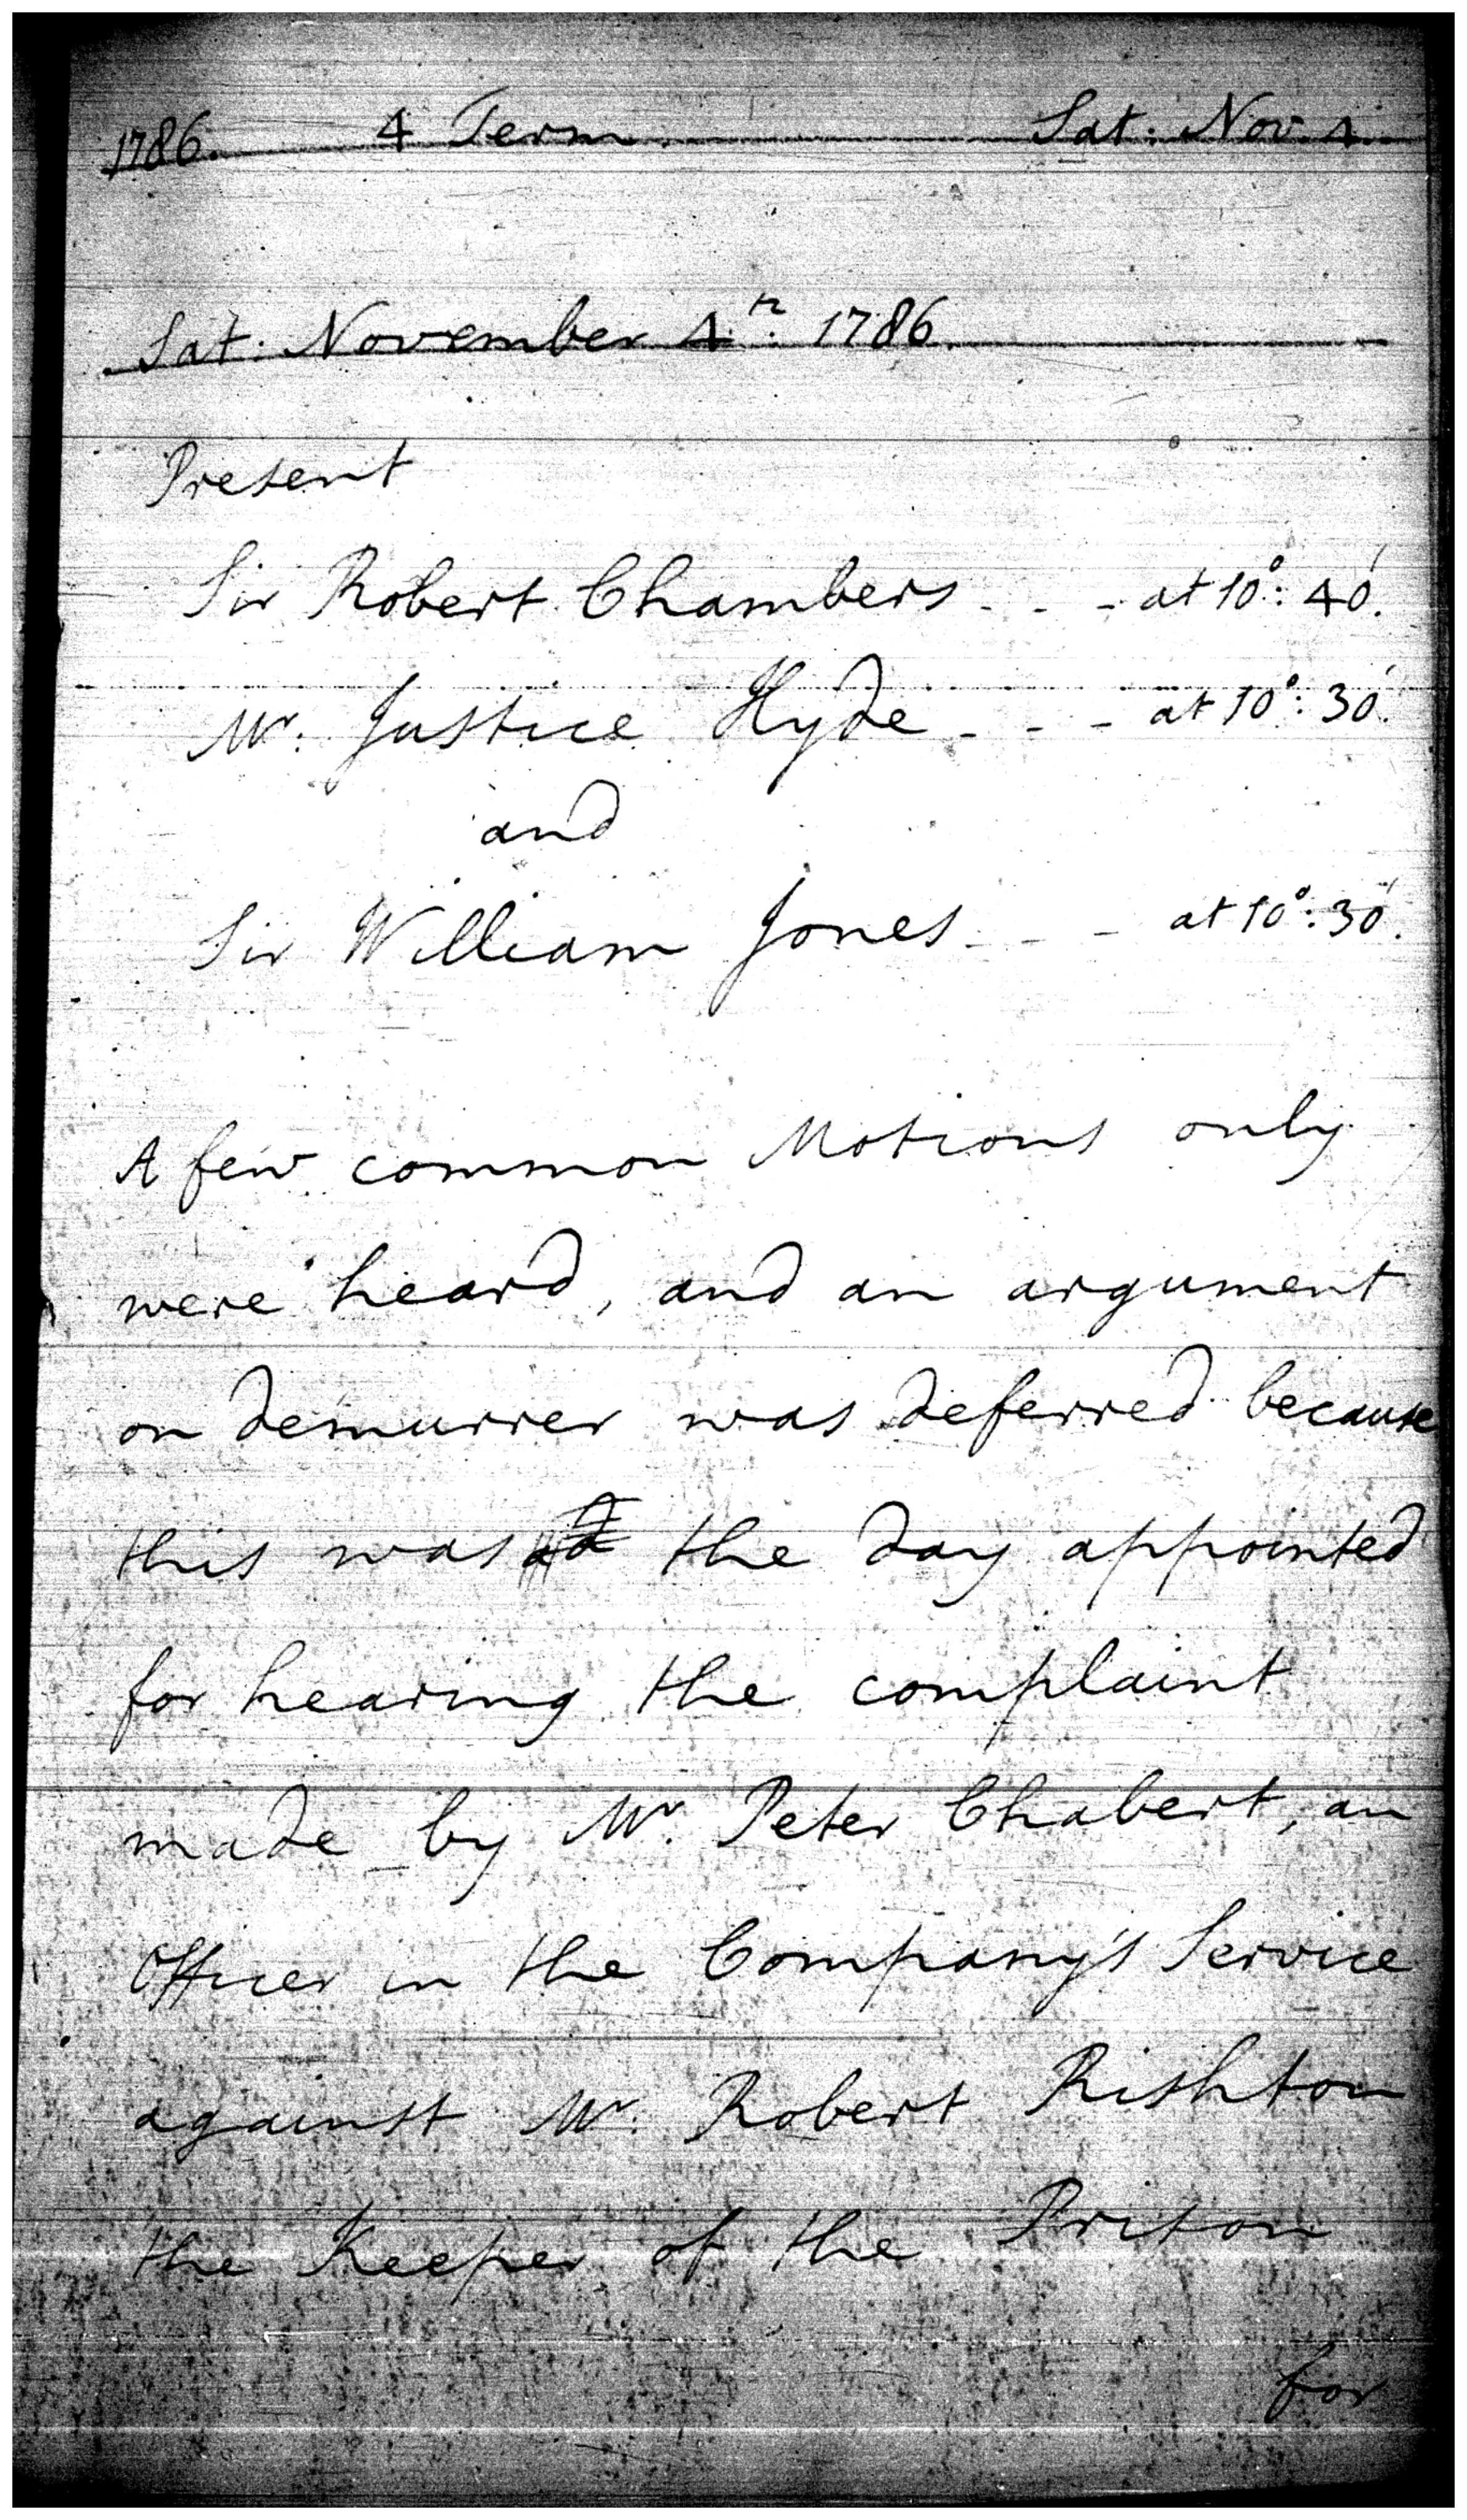 1786. 4 Term. Sat: Nov. 4.
Sat: November 4th: 1786.
Present
Sir Robert Chambers - - - at 10°: 40'.
Mr. Justice Hyde - - - at 10°: 30'.
and
Sir William Jones - - - at 10°: 30'.
A few common Motions only
were heard, and an argument
on demurrer was deferred because
this was the day appointed
for hearing the complaint
made by Mr. Peter Chabert, an
Officer in the Company's Service
against Mr. Robert Rishton
the Keeper of the Prison
for